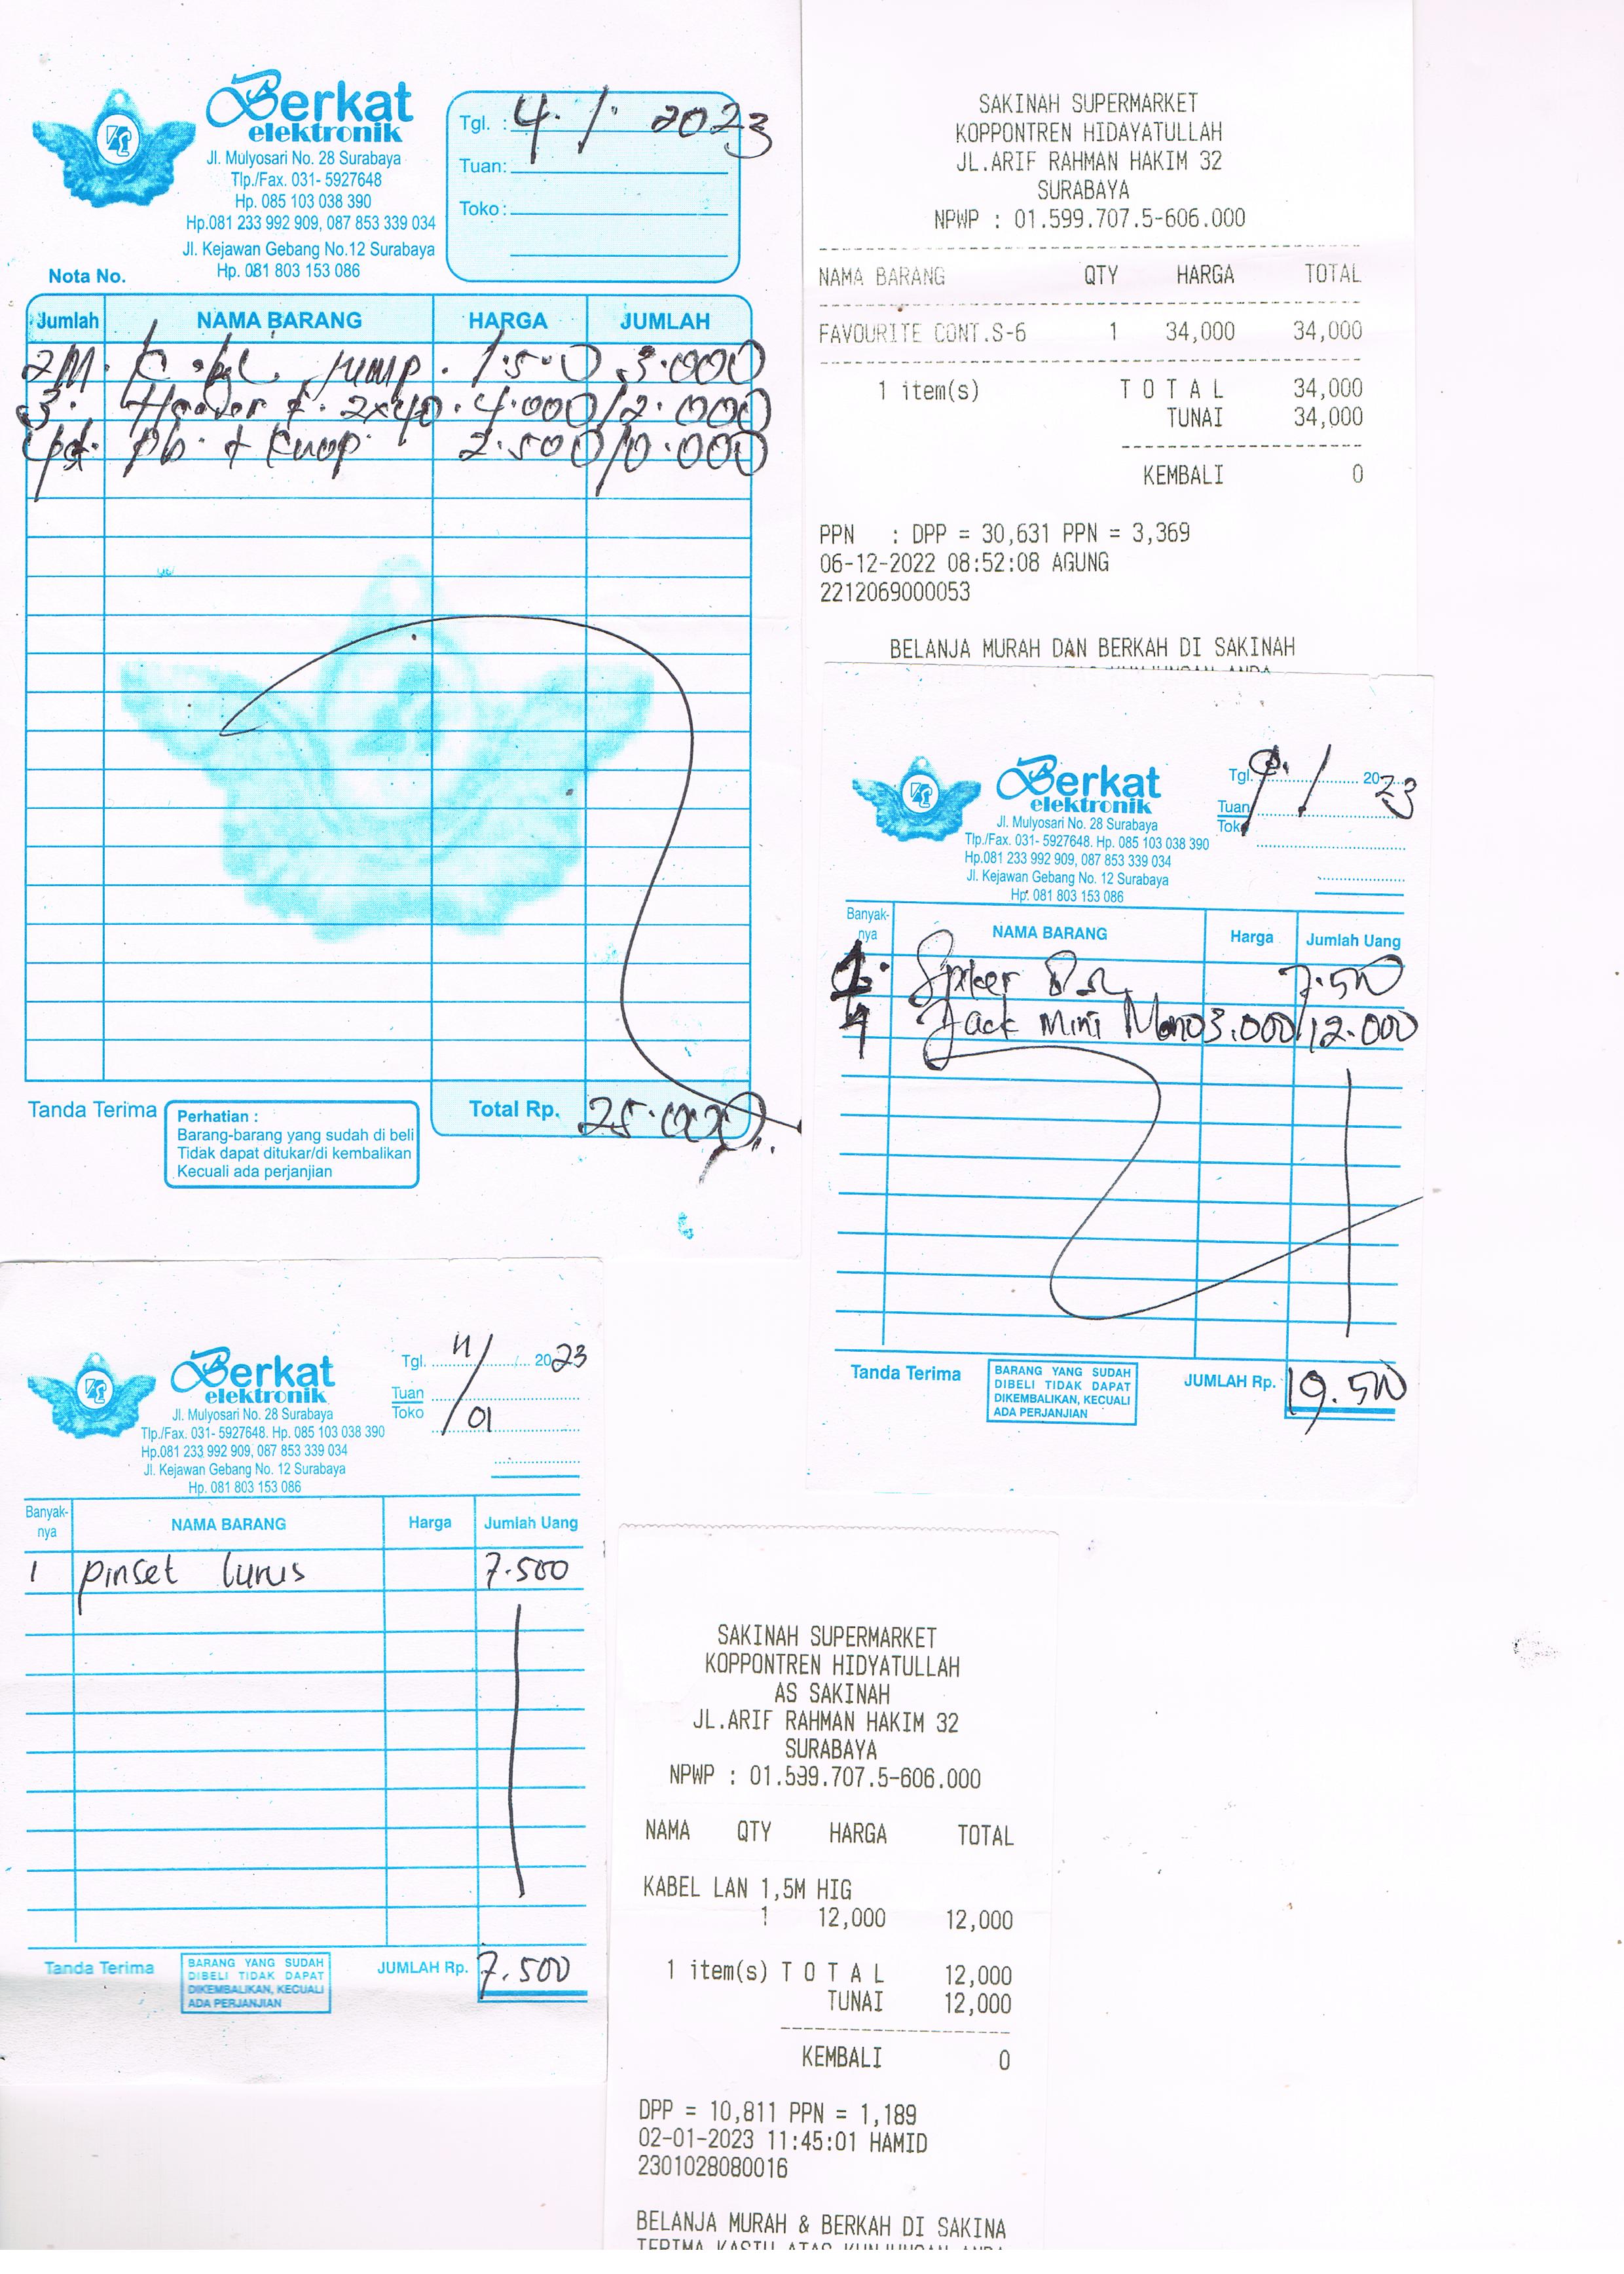 Berkat
elektronik
Jl. Mulyosari No. 28 Surabaya
Tlp./Fax. 031- 5927648
Hp. 085 103 038 390
Hp.081 233 992 909, 087 853 339 034
Jl. Kejawan Gebang No.12 Surabaya
Hp. 081 803 153 086
Tgl. : 4. 1. 2023
Tuan:
Toko:
Nota No.
Jumlah NAMA BARANG HARGA JUMLAH
2M. Kabel jump. 1.500 3.000
3. Header f. 2x40. 4.000 12.000
4pot. + Knop 2.500 10.000
Tanda Terima
Perhatian :
Barang-barang yang sudah di beli
Tidak dapat ditukar/di kembalikan
Kecuali ada perjanjian
Total Rp. 25.000
SAKINAH SUPERMARKET
KOPPONTREN HIDAYATULLAH
JL.ARIF RAHMAN HAKIM 32
SURABAYA
NPWP : 01.599.707.5-606.000
NAMA BARANG QTY HARGA TOTAL
FAVOURITE CONT.S-6 1 34,000 34,000
1 item(s) T O T A L 34,000
TUNAI 34,000
KEMBALI 0
PPN : DPP = 30,631 PPN = 3,369
06-12-2022 08:52:08 AGUNG
2212069000053
BELANJA MURAH DAN BERKAH DI SAKINAH
Berkat
elektronik
Jl. Mulyosari No. 28 Surabaya
Tlp./Fax. 031- 5927648. Hp. 085 103 038 390
Hp.081 233 992 909, 087 853 339 034
Jl. Kejawan Gebang No. 12 Surabaya
Hp. 081 803 153 086
Tgl. 9. / 2023
Tuan
Toko
Banyak-
nya NAMA BARANG Harga Jumlah Uang
1. Spiker 8Ω 7.500
4 Jack Mini Mono 3.000 12.000
Tanda Terima
BARANG YANG SUDAH
DIBELI TIDAK DAPAT
DIKEMBALIKAN, KECUALI
ADA PERJANJIAN
JUMLAH Rp. 19.500
Berkat
elektronik
Jl. Mulyosari No. 28 Surabaya
Tlp./Fax. 031- 5927648. Hp. 085 103 038 390
Hp.081 233 992 909, 087 853 339 034
Jl. Kejawan Gebang No. 12 Surabaya
Hp. 081 803 153 086
Tgl. 11/01 2023
Tuan
Toko
Banyak-
nya NAMA BARANG Harga Jumlah Uang
1 pinset lurus 7.500
Tanda Terima
BARANG YANG SUDAH
DIBELI TIDAK DAPAT
DIKEMBALIKAN, KECUALI
ADA PERJANJIAN
JUMLAH Rp. 7.500
SAKINAH SUPERMARKET
KOPPONTREN HIDYATULLAH
AS SAKINAH
JL.ARIF RAHMAN HAKIM 32
SURABAYA
NPWP : 01.599.707.5-606.000
NAMA QTY HARGA TOTAL
KABEL LAN 1,5M HIG
1 12,000 12,000
1 item(s) T O T A L 12,000
TUNAI 12,000
KEMBALI 0
DPP = 10,811 PPN = 1,189
02-01-2023 11:45:01 HAMID
2301028080016
BELANJA MURAH & BERKAH DI SAKINA
TERIMA KASIH ATAS KUNJUNGAN ANDA